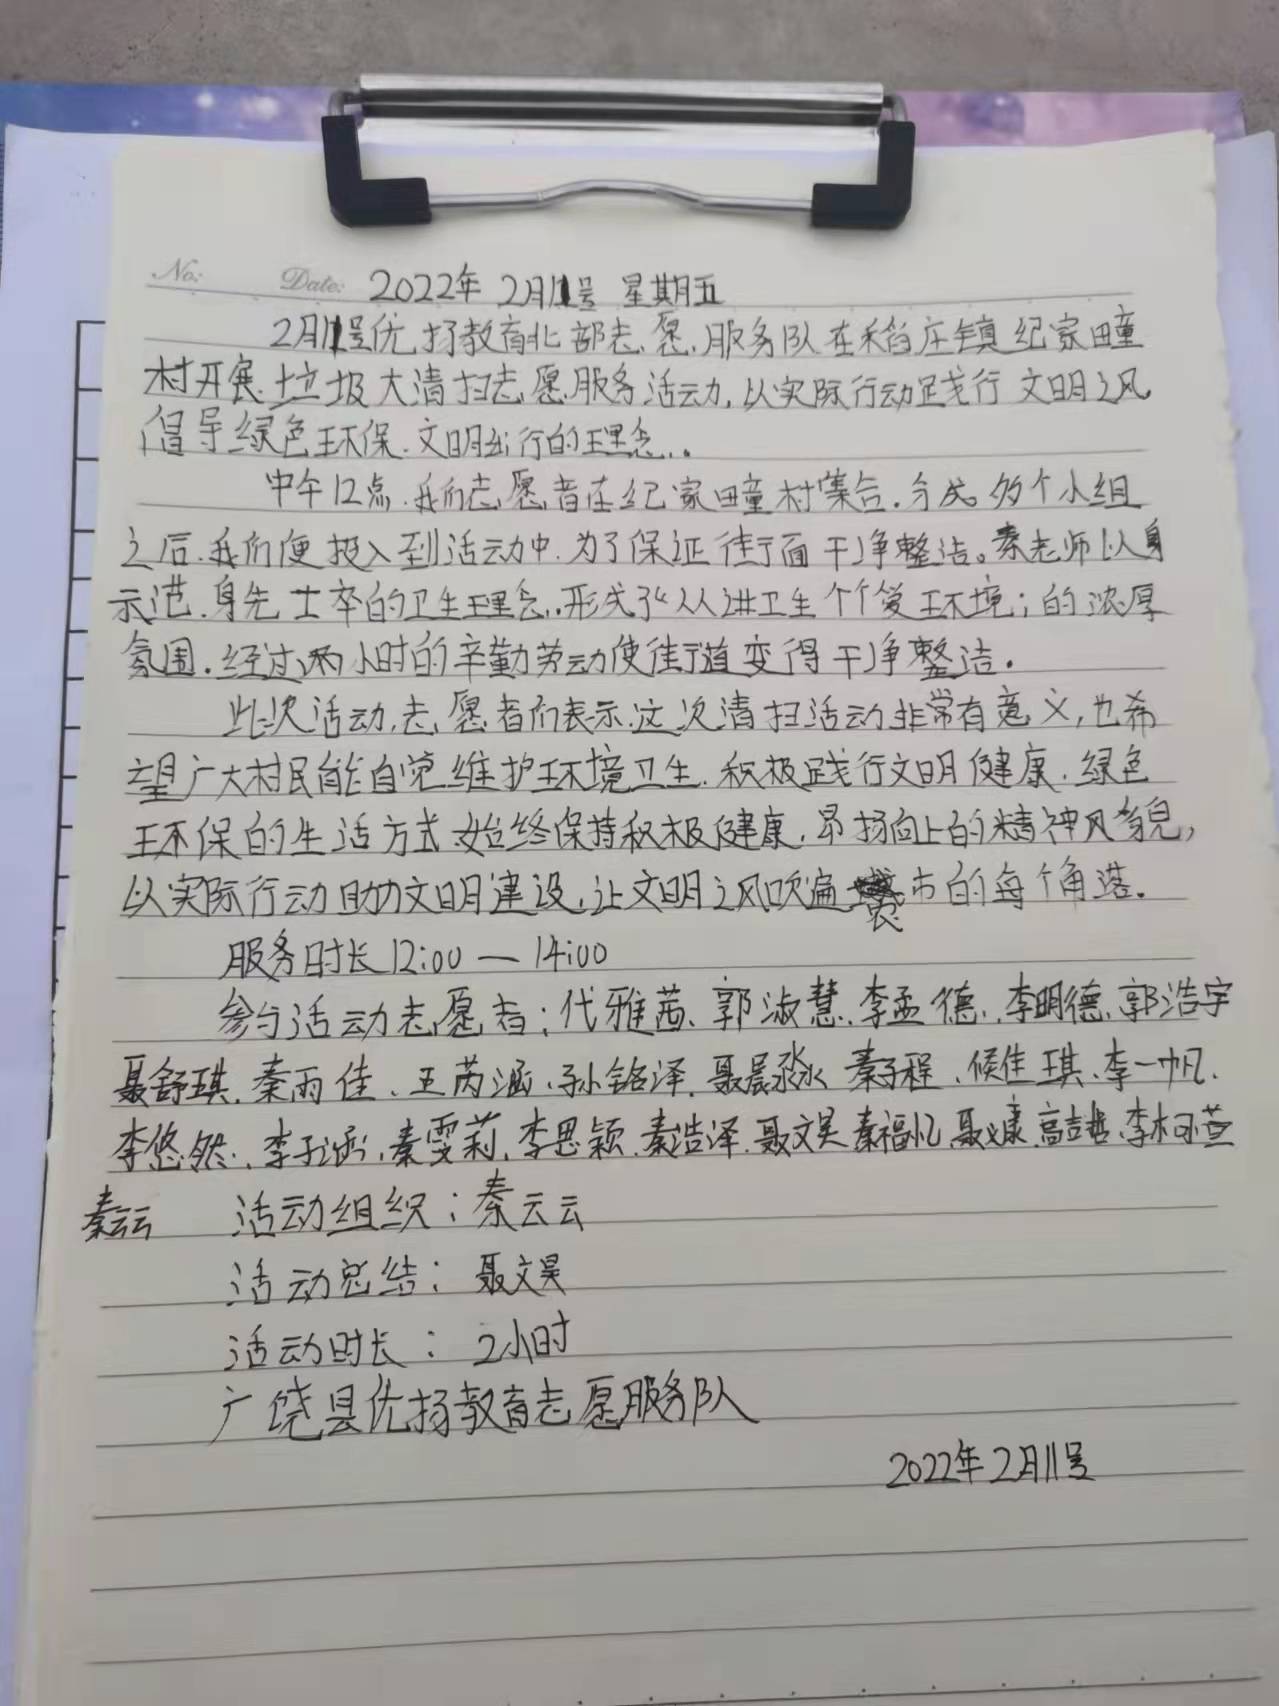 No:
Date: 2022年 2月11号 星期五
2月11号优扬教育北部志愿服务队在稻庄镇纪家疃
村开展垃圾大清扫志愿服务活动,以实际行动践行文明之风
倡导绿色环保.文明出行的理念.
中午12点.我们志愿者在纪家疃村集合.分成多个小组
之后.我们便投入到活动中.为了保证街面干净整洁。秦老师以身
示范.身先士卒的卫生理念.形成了“人人讲卫生个个爱环境;的浓厚
氛围.经过两小时的辛勤劳动使街道变得干净整洁.
此次活动,志愿者们表示.这次清扫活动非常有意义,也希
望广大村民能自觉维护环境卫生.积极践行文明健康.绿色
环保的生活方式.始终保持积极健康.昂扬向上的精神风貌,
以实际行动助力文明建设,让文明之风吹遍农市的每个角落.
服务时长12:00—14:00
参与活动志愿者:代雅茜.郭淑慧.李孟德.李明德.郭浩宇
聂舒琪.秦雨佳.王芮涵.孙铭泽.聂晨淼 秦子程.候佳琪.李一帆.
李悠然.李子涵.秦雯莉.李思颖.秦浩泽.聂文昊 秦福忆 聂义康 高喆 李柯萱
秦云云 活动组织:秦云云
活动总结:聂文昊
活动时长:2小时
广饶县优扬教育志愿服务队
2022年2月11号